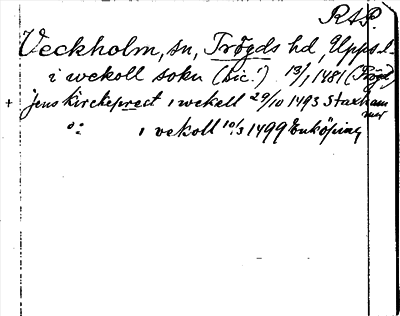 RAP.
Veckholm, sn, Trögds hd, Uppsl.
i wekoll sokn (sic!) 13/1 1481 (Trögd)
+ jens kirckeprest i wekell 29/10 1493 Staxham
mer
i vekoll 10/3 1499 Enköping